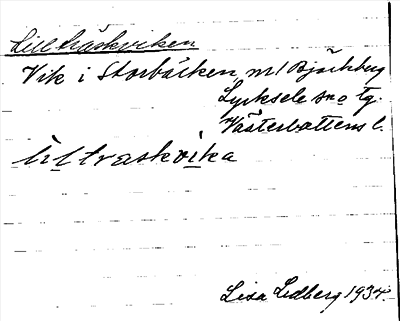 Lillträskviken
Vik i Storbäcken, m/ Björkberg
Lycksele sn o tg.
Västerbottens l.
lìltraskvìka
Lisa Lidberg 1934.